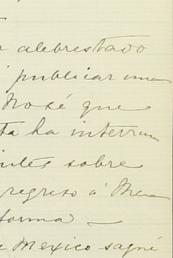 alebrestado
publicar una
No sé que
ta ha interrum
sobre
regreso á Me
forma —
Mexico saqué